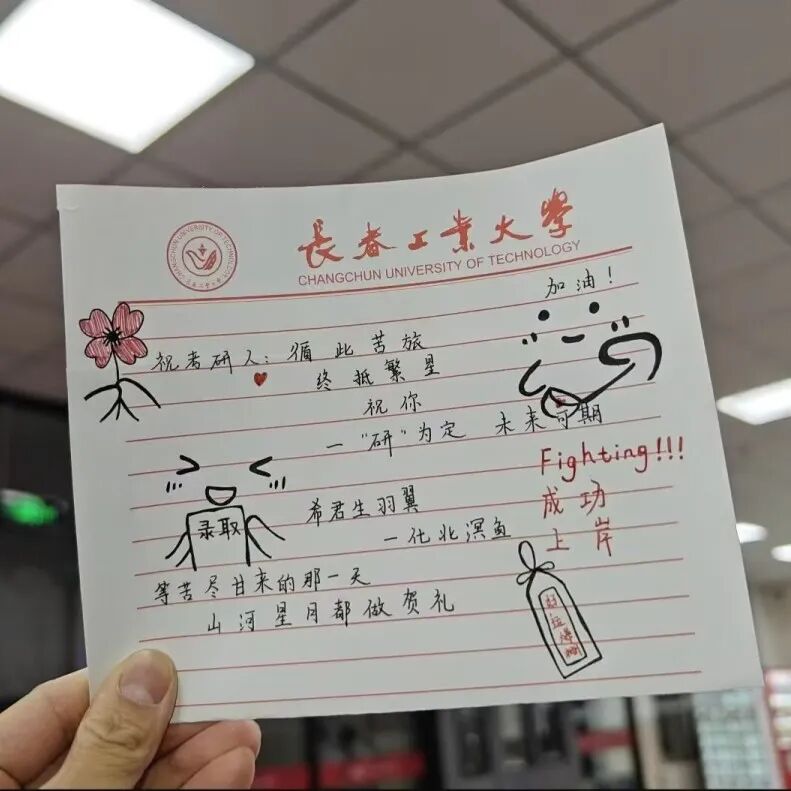 長春工業大學
CHANGCHUN UNIVERSITY OF TECHNOLOGY
CHANGCHUN UNIVERSITY OF TECHNOLOGY
加油！
祝考研人：循此苦旅
终抵繁星
祝你
一“研”为定 未来可期
Fighting!!!
成功
上岸
录取
希君生羽翼
一化北溟鱼
等苦尽甘来的那一天
山河星月都做贺礼